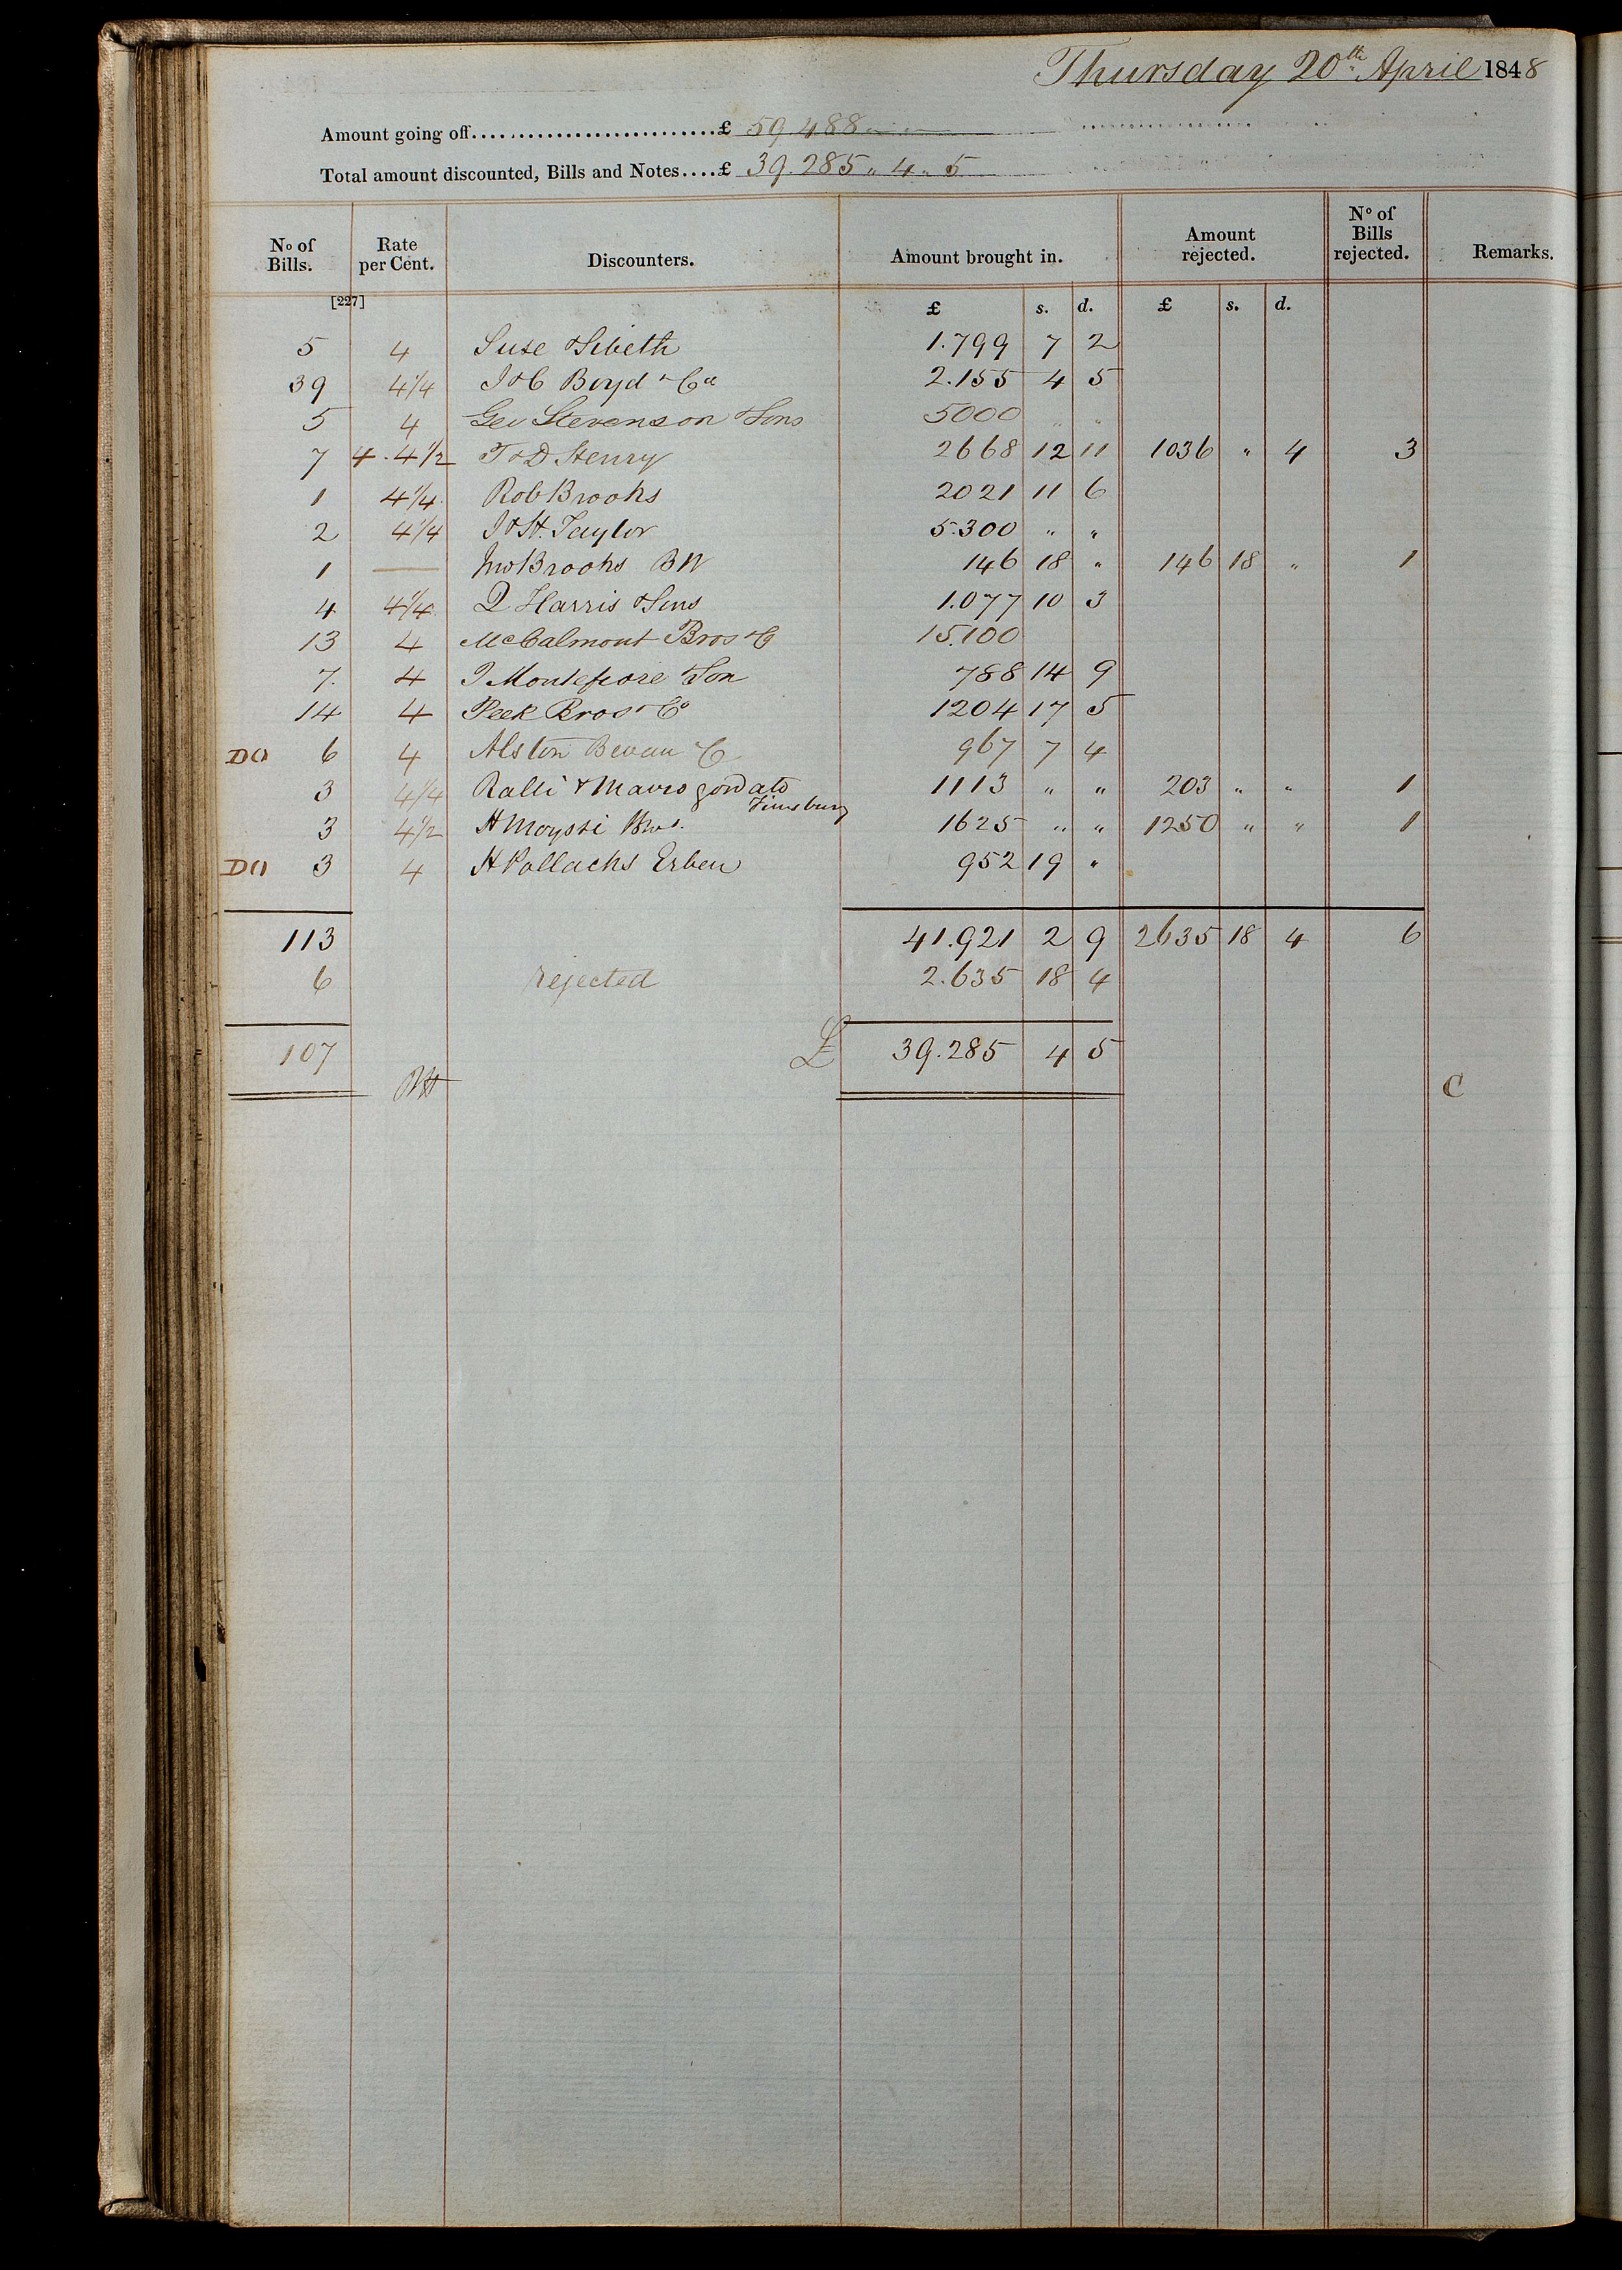 Thursday 20th April 1848
Amount going off..........................£ 59.488 " "
Total amount discounted, Bills and Notes....£ 39.285 " 4 " 5
No of Bills. Rate per Cent. Discounters. Amount brought in. Amount rejected. No of Bills rejected. Remarks.
[227] £ s. d. £ s. d.
5 4 Suse & Sibeth 1.799 7 2
39 4 1/4 J & C Boyd & Co 2.155 4 5
5 4 Geo Stevenson & Sons 5000 " "
7 4 . 4 1/2 T & D Henry 2668 12 11 1036 " 4 3
1 4 1/4 Rob Brooks 2021 11 6
2 4 1/4 J & H. Taylor 5.300 " "
1 — Jno Brooks BN 146 18 " 146 18 " 1
4 4 1/4 D Harris & Sons 1.077 10 3
13 4 McCalmont Bros & Co 15.100
7. 4 J Montefiore & Son 788 14 9
14 4 Peek Bros & Co 1204 17 5
DO 6 4 Alston Bevan & Co 967 7 4
3 4 1/4 Ralli & Mavrogordato 1113 " " 203 " " 1
Finsbury
3 4 1/2 H Moyssi Bros. 1625 " " 1250 " " 1
DO 3 4 H Pollacks Erben 952 19 "
113 41.921 2 9 2635 18 4 6
6 rejected 2.635 18 4
107 £ 39.285 4 5
C